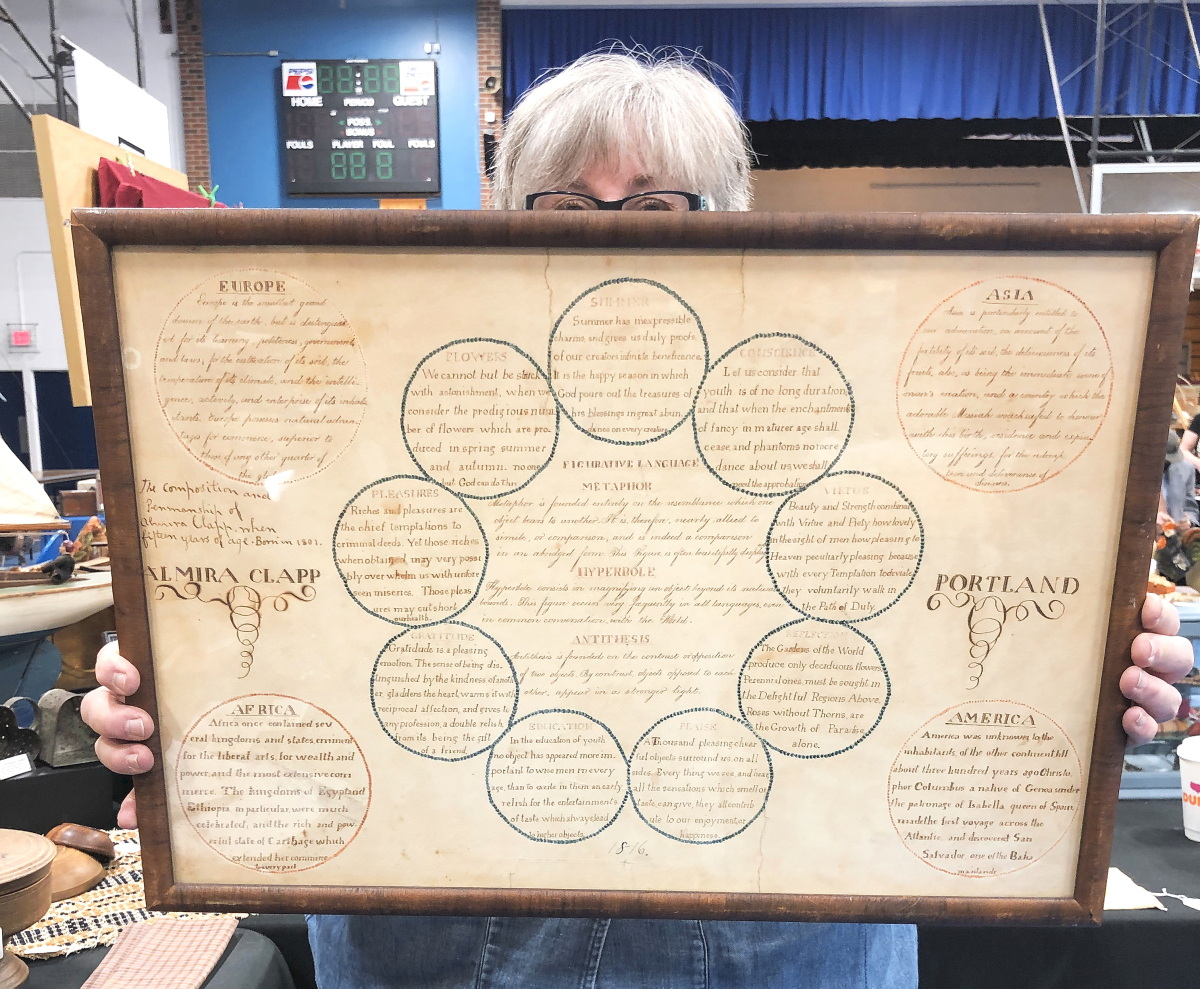 PEPSI
HOME
PERIOD
GUEST
POSS.
BONUS
FOULS
PLAYER
FOUL
FOULS
EUROPE
Europe is the smallest grand
division of the earth, but is distinguish
ed for its learning, politeness, government,
and laws; for the cultivation of its soil, the
temperature of its climate, and the intelli
gence, activity, and enterprise of its inhab
itants. Europe possesses natural advan
tages for commerce, superior to
those of any other quarter of
the globe.
The composition and
Penmanship of
Almira Clapp, when
fifteen years of age. Born in 1801.
ALMIRA CLAPP
AFRICA
Africa once contained sev
eral kingdoms and states, eminent
for the liberal arts, for wealth and
power, and the most extensive com
merce. The kingdoms of Egypt and
Ethiopia in particular were much
celebrated; and the rich and pow
erful state of Carthage which
extended her commerce
to every part
SUMMER
Summer has inexpressible
charms, and gives us daily proofs
of our creators infinite beneficence.
It is the happy season in which
God pours out the treasures of
his blessings in great abun
dance on every creature
FLOWERS
We cannot but be struck
with astonishment, when we
consider the prodigious num
ber of flowers which are pro
duced in spring summer
and autumn. no one
but God can do this
CONSCIENCE
Let us consider that
youth is of no long duration,
and that when the enchantments
of fancy in maturer age shall
cease and phantoms no more
dance about us we shall
need the approbation
PLEASURES
Riches and pleasures are
the chief temptations to
criminal deeds. Yet those riches
when obtained, may very possi
bly overwhelm us with unfore
seen miseries. Those pleas
ures may cut short
our health.
VIRTUE
Beauty and Strength combined
with Virtue and Piety how lovely
in the sight of men how pleasing to
Heaven peculiarly pleasing because
with every Temptation to deviate
they voluntarily walk in
the Path of Duty.
FIGURATIVE LANGUAGE
METAPHOR
Metaphor is founded entirely on the resemblance which one
object bears to another. It is, therefore, nearly allied to
simile, or comparison, and is indeed a comparison
in an abridged form. This Figure is often beautifully
HYPERBOLE
Hyperbole consists in magnifying an object beyond its natural
bounds. This figure occurs very frequently in all languages, even
in common conversation, with the World.
ANTITHESIS
Antithesis is founded on the contrast or opposition
of two objects. By contrast, objects opposed to each
other, appear in a stronger light.
GRATITUDE
Gratidude is a pleasing
emotion. The sense of being dis
tinguished by the kindness of anoth
er, gladdens the heart, warms it with
reciprocal affection, and gives to
any profession, a double relish
from its being the gift
of a friend.
REFLECTION
The Gardens of the World
produce only deciduous flowers
Perennial ones, must be sought in
the Delightful Regions Above.
Roses without Thorns, are
the Growth of Paradise
alone.
EDUCATION
In the education of youth
no object has appeared more im
portant to wise men in every
age, than to excite in them an early
relish for the entertainments
of taste which always lead
to higher objects
PLEASE
A Thousand pleasing cheer
ful objects surround us, on all
sides. Every thing we see, and hear
all the sensations which smell or
taste, can give, they all contrib
ute to our enjoyment or
happiness.
1816.
ASIA
Asia is particularly entitled to
our admiration, on account of the
fertility of its soil, the deliciousness of its
fruits, also, as being the immediate scene of
man's creation, and as country which the
adorable Messiah vouchsafed to honour
with his birth, residence and expia
tory sufferings for the redemp
tion and deliverance of
PORTLAND
AMERICA
America was unknown to the
inhabitants of the other continent till
about three hundred years ago Christo
pher Columbus a native of Genoa under
the patronage of Isabella queen of Spain,
made the first voyage across the
Atlantic, and discovered San
Salvador, one of the Baha
ma islands
DU